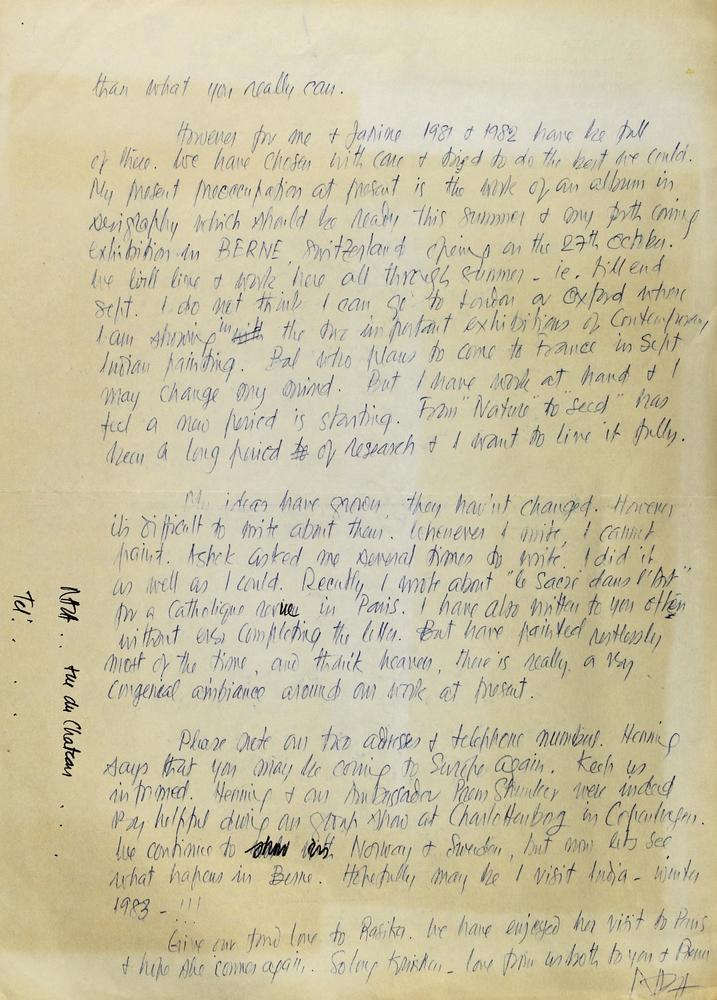 than what you really can.
However for me & Janine 1981 & 1982 have be full
of these. We have chosen with care & tried to do the best we could.
My present preoccupation at present is the work of an album in
Serigraphy which should be ready this summer & my forth coming
Exhibition in BERNE, Switzerland opening on the 27th October.
We will live & work here all through summer - ie. till end
Sept. I do not think I can go to London or Oxford where
I am showing in the two important exhibitions of Contemporary
Indian painting. Bal who plans to come to France in Sept
may change my mind. But I have work at hand & I
feel a new period is starting. From "Nature" to "Seed" has
been a long period of research & I want to live it fully.
My ideas have grown, they hav'nt changed. However
its difficult to write about them. Whenever I write, I cannot
paint. Ashok asked me several times to write. I did it
as well as I could. Recently I wrote about "le Sacré dans l'Art"
for a Catholique revue in Paris. I have also written to you often
without ever completing the letter. But have painted restlessly
most of the time, and thank heaven, there is really a very
congenial ambiance around our work at present.
Please note our two adresses & telephone numbers. Henning
says that you may be coming to Europe again. Keep us
informed. Henning & our Ambassador were indeed
very helpful during our group show at Charlottenborg in Copenhagen.
We continue to Norway & Sweden, but now lets see
what hapens in Berne. Hopefully may be I visit India - winter
1983 - !!!
Give our fond love to Rasika. We have enjoyed her visit to Paris
& hope she comes again. So long Krishen - love from us both to you &
RAZA
RAZA .. rue du Chateau . .
Tel: . . .